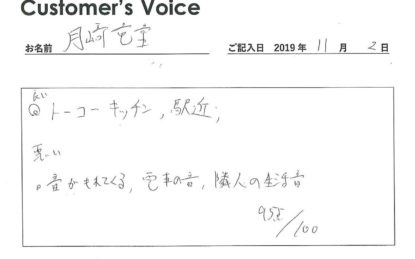 Customer's Voice
お名前 月崎 ご記入日 2019 年 11 月 2 日
良い
◎ トーコーキッチン, 駅近;
悪い
。音がもれてくる, 電車の音, 隣人の生活音
95点/100